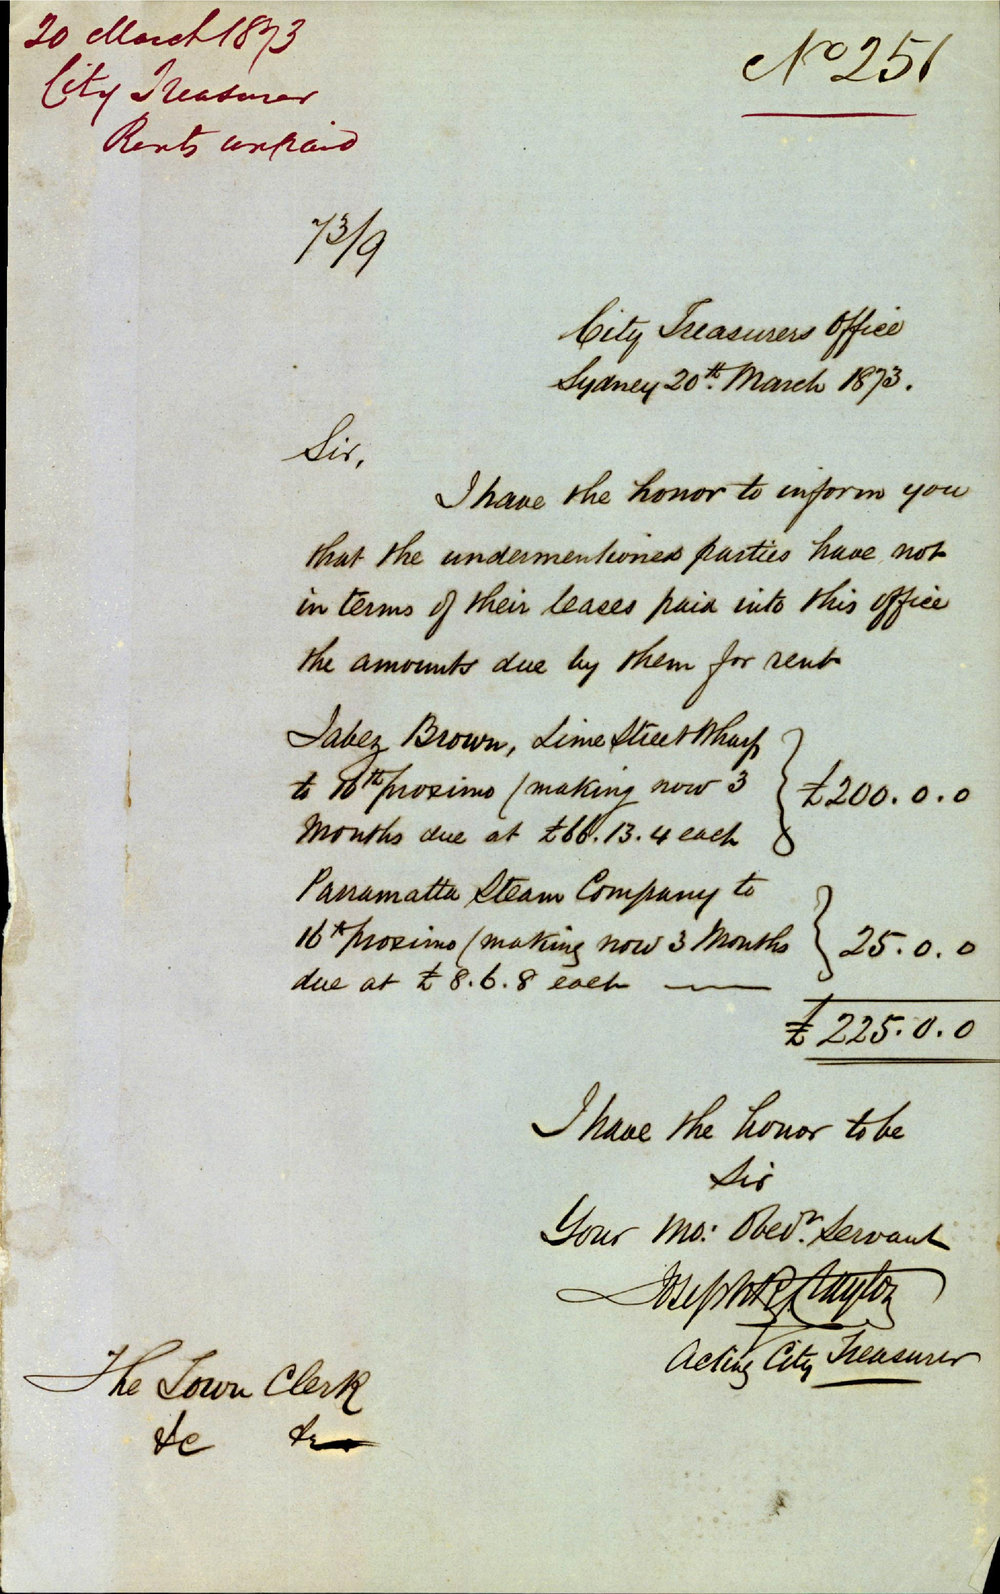 20 March 1873
City Treasurer
Rents unpaid
No 251
73/9
City Treasurers Office
Sydney 20th. March 1873.
Sir,
I have the honor to inform you
that the undermentioned parties have not
in terms of their leases paid into this office
the amounts due by them for rent
Jabez Brown, Lime Street Wharf
to 16th proximo (making now 3
Months due at £66.13.4 each
£200.0.0
Parramatta Steam Company to
16th proximo (making now 3 Months
due at £8.6.8 each
25.0.0
£225.0.0
I have the honor to be
Sir
Your Mo: Obedt. Servant
Joseph R. Clayton
Acting City Treasurer
The Town Clerk
&c &c